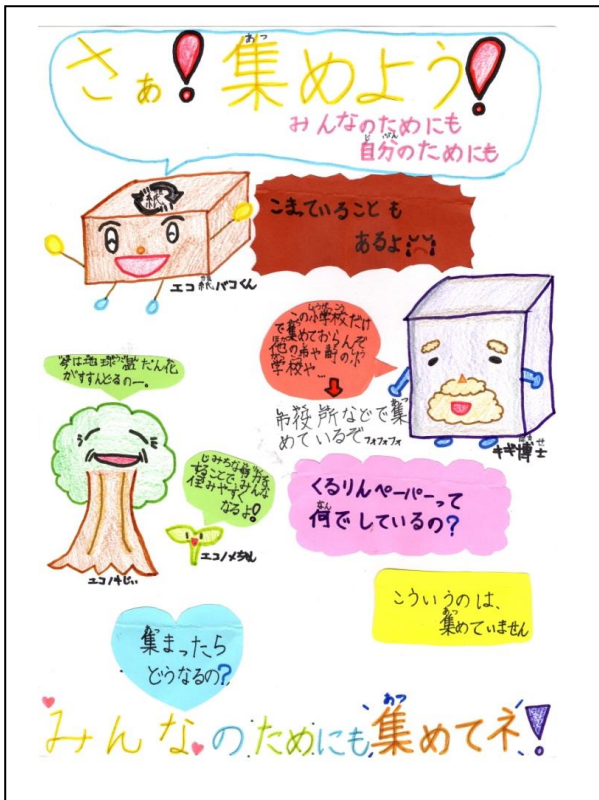 さぁ！集めよう！
あつ
みんなのためにも
自分のためにも
じぶん
紙
エコ紙バコくん
こまっていることも
あるよ
この小学校だけ
で集めておらんぞ
他の市や町の小
学校や…
市役所などで集
めているぞフォフォフォ
キギ博士
はかせ
今は地球温だん化
がすすんどるのー。
エコノキじい
じみちな努力を
することで、みんな
住みやすく
なるよ！
エコノメちゃん
くるりんペーパーって
何でしているの？
なん
こういうのは、
集めていません
あつ
集まったら
あつ
どうなるの？
みんなのためにも集めてネ！
あつ